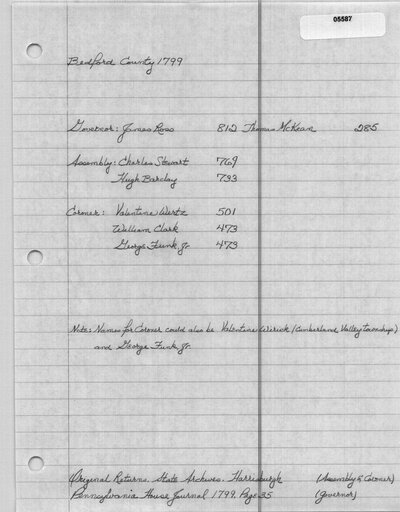 05587
Bedford County 1799
Governor: James Ross 812 Thomas McKean 285
Assembly: Charles Stewart 769
Hugh Barclay 733
Coroner: Valentine Wertz 501
William Clark 473
George Funk Jr. 473
Note: Names for Coroner could also be Valentine (Cumberland Valley township)
and George Funk Jr.
Original Returns. State Archives. Harrisburg (Assembly & Coroner)
Pennsylvania House Journal 1799, Page 35 (Governor)